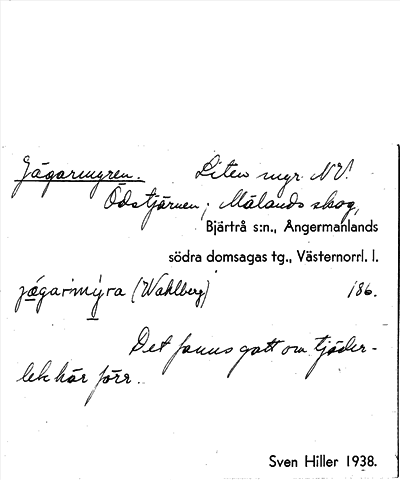 Jägarmyren. Liten myr NV.
Ödstjärnen; Mälands skog,
Bjärtrå s:n., Ångermanlands
södra domsagas tg., Västernorrl. l.
jägarmýra (Wahlberg) 186.
Det fanns gott om tjäder-
lek här förr.
Sven Hiller 1938.